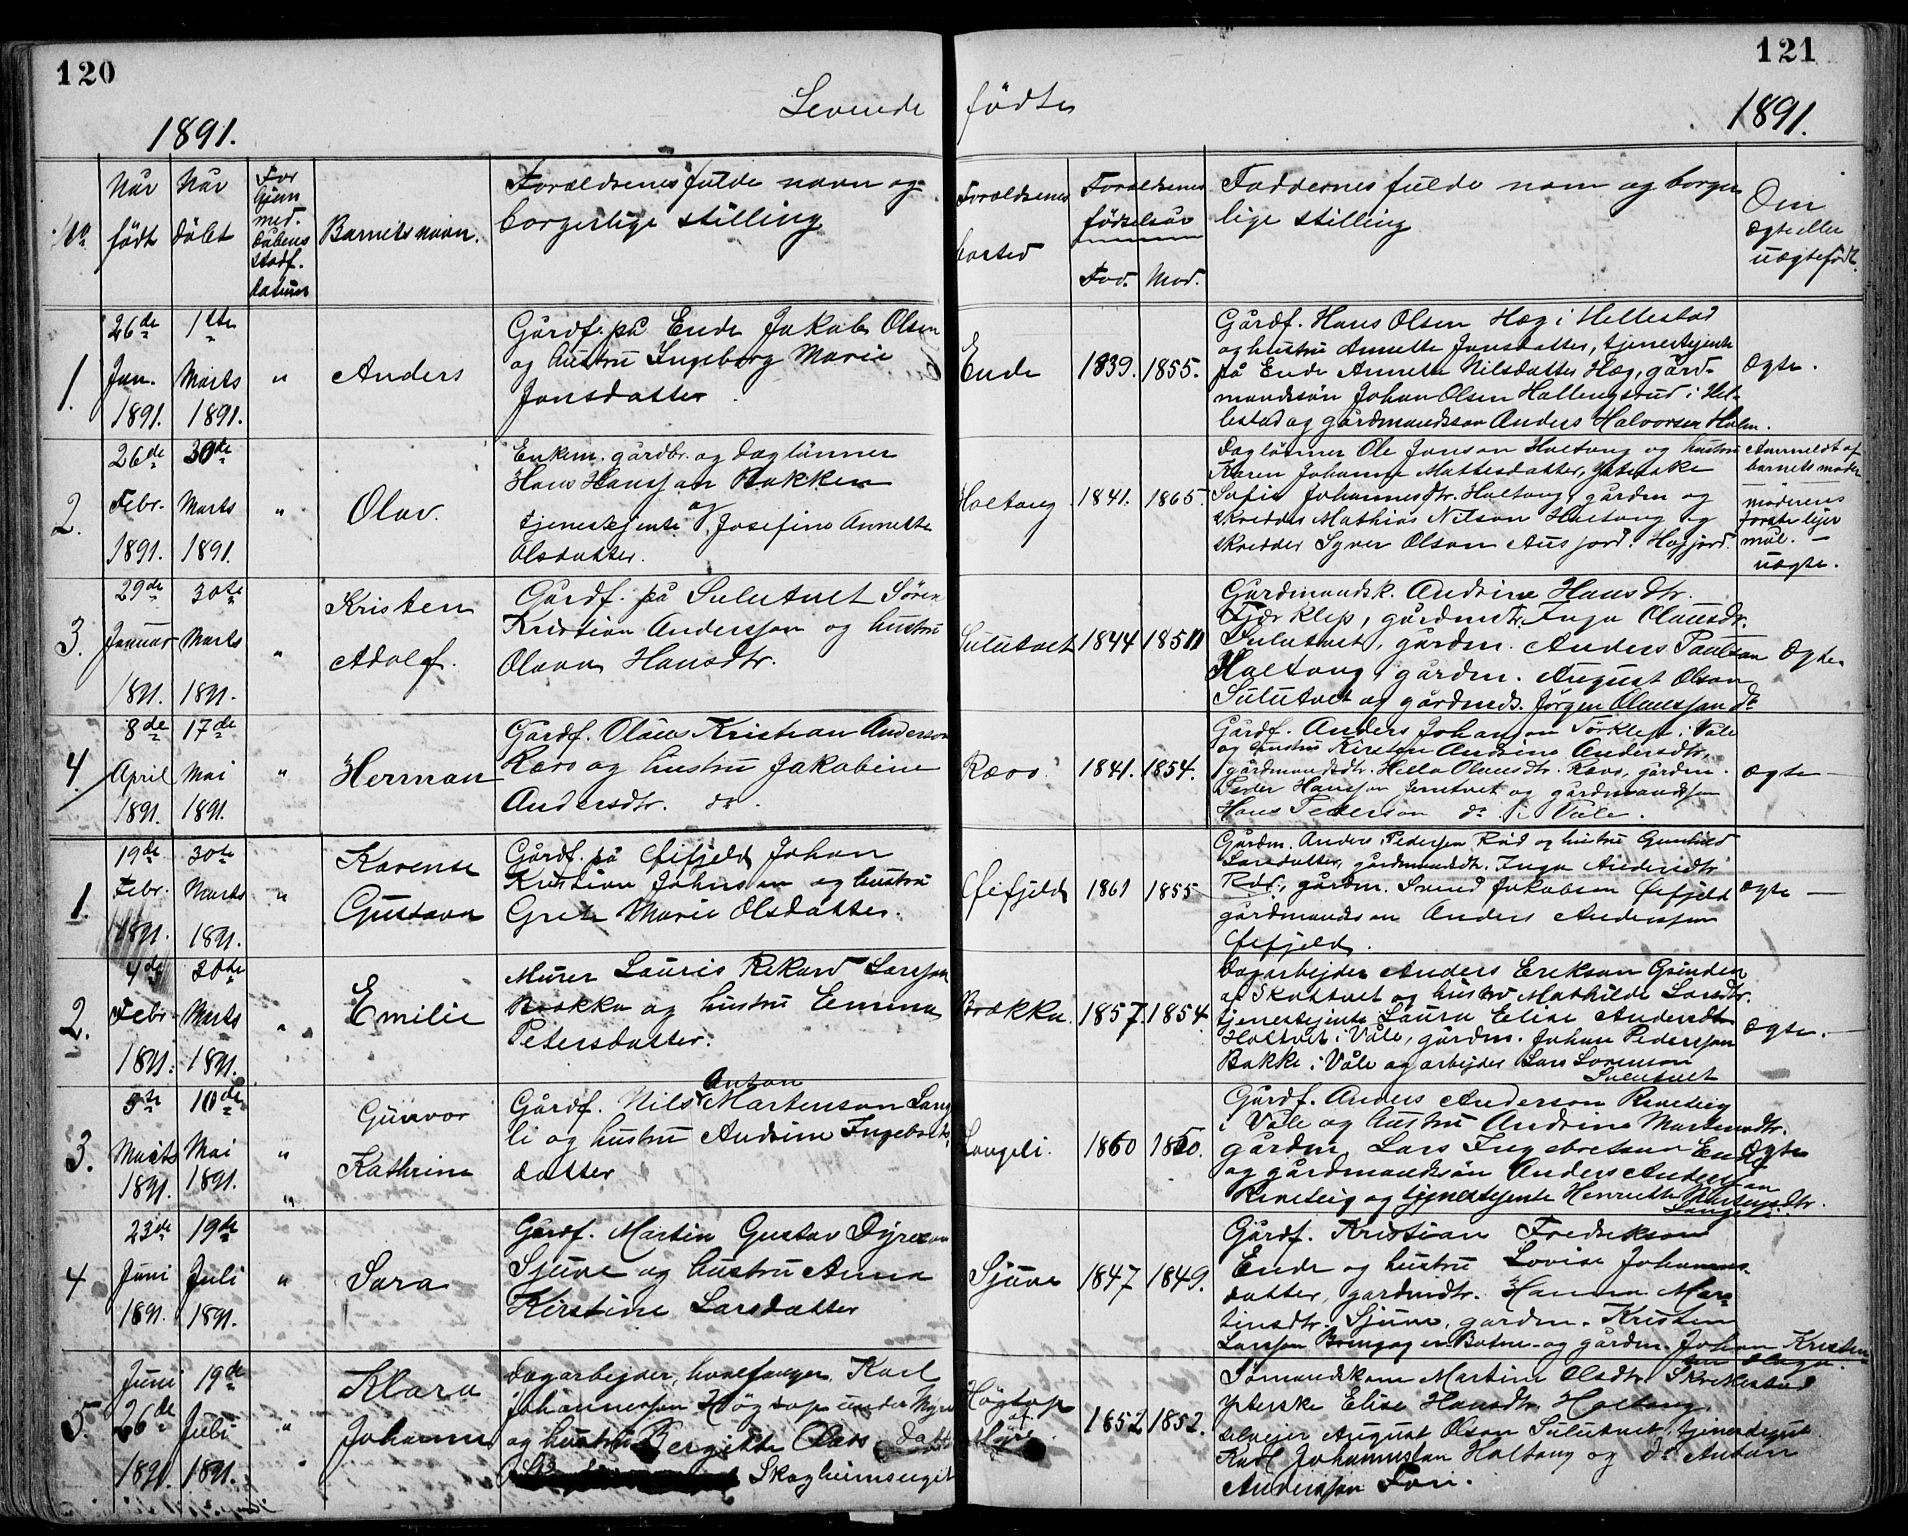 120
121
Levende fødte
1891.
1891.
No
Når født
Når døbt
For hjem med. dåbens stadf. datum
Barnets navn.
Forældrenes fulde navn og borgerlige stilling
Forældrenes bosted
Forældrenes fødselsår
Fad. Mod.
Faddernes fulde navn og borger
lige stilling
Om
ægte eller
uægtefødt.
1.
26de Jan. 1891.
1ste Marts 1891.
"
Anders
Gårdf. på Ende Jakob Olsen
og hustru Ingeborg Marie
Jonsdatter
Ende
1839. 1855.
Gårdf. Hans Olsen Hæg i Hillestad
og hustru Annette Jonsdatter, tjenestejente
på Ende Annette Nilsdatter Hæg, gård-
mandssøn Johan Olsen Hallengstud i Hil-
lestad og gårdmandssøn Anders Halvorsen Holm.
Ægte.
2.
26de Febr. 1891.
30te Marts 1891.
"
Olav.
Enkem. gårdbr. og daglønner
Hans Hanssøn Bakken
og
tjenestejente Josefine Annette
Olsdatter.
Holtong
1841. 1865.
Daglønner Ole Jonson Holtong og hustru
Karen Johanne Mattesdatter, ysterske
Sofie Johannesdtr. Holtong, gården og
skredder Mathias Nilson Holtong og
skredder Syver Olson Ausjord.
Anmeldt af
barnets moder
moderens
første lejer
mål. —
uægte.
3.
29de Januar 1891.
30te Marts 1891.
"
Kristen
Adolf.
Gårdf. på Sulutvet Søren
Kristian Anderssøn og hustru
Olava Hansdtr.
Sulutvet
1844 1851
Gårdmandsk. Andrine Hansdtr.
klep, gårdmdtr. Inga Olausdtr.
Sulutvet, gårdm. Anders Paulsen
Holtong, gårdm. August Olson
Sulutvet og gårdmds. Jørgen Olaussøn do
Ægte
4.
8de April 1891.
17de Mai 1891.
"
Herman
Gårdf. Olaus Kristian Anderson
Røvo og hustru Jakobine
Andersdtr. do.
Røvo.
1841. 1854.
Gårdf. Anders Johanson Tørklep i Våle
og hustru Kirsten Andrine Andersdtr.,
gårdmandsdtr. Hella Olausdtr. Røvo, gårdm.
Peder Hanssøn og gårdmandssøn
Hans Pederson do i Våle.
Ægte —
1.
19de Febr. 1891.
30te Marts 1891.
"
Karense
Gustava
Gårdf. på Øifjeld Johan
Kristian Johnson og hustru
Grete Marie Olsdatter.
Øifjeld
1861 1855
Gårdm. Anders Pedersen Rød og hustru Gunhild
Larsdatter, gårdmandsdtr. Inga Andersdtr.
Rød, gårdm. Svend Jakobson Øifjeld
gårdmandssøn Anders Anderssøn
Øifjeld.
Ægte —
2.
4de Febr 1891.
30te Marts 1891.
"
Emilie
Murer Lauris Rikard Larssøn
Brække og hustru Emma
Petersdatter.
Brække.
1857. 1854
Dagarbejder Anders Erikson Grinden
af Skottvet og hustru Mathilde Larsdtr.
tjenestejente Laura Elise Andersdtr
Holtvet i Våle, gårdm. Johan Pederssøn
Bakke i Våle og arbejder Lars Lorenson
Sulutvet
Ægte. —
3.
5te Marts 1891.
10de Mai 1891.
"
Gunvor
Kathrine
Anton
Gårdf. Nils Martenson Lang
li og hustru Andrine Ingebrets
datter
Langeli.
1860 1850.
Gårdf. Anders Anderson Reneteig
i Våle og hustru Andrine Martensdtr.
gårdm. Lars Ingebretson Ende
og gårdmandssøn Anders Anderson
Reneteig og tjenestejente Henriette Martensdtr.
Langeli.
Ægte
4
23de Juni 1891.
19de Juli 1891.
"
Sara
Gårdf. Martin Gustav Dyreson
Sjuve og hustru Anna
Kirstine Larsdatter
Sjuve
1847 1849.
Gårdf. Kristian Fredrikson
Ende og hustru Lovise Johannes-
datter, gårdmdtr. Hanna Mar-
tinsdtr. Sjuve, gårdm. Kristen
Larssøn Botne og gårdm. Johan Kristen
5.
Juni 26de 1891.
19de Juli 1891.
"
Klara
Johanne
Dagarbejder, hvalfanger Karl
Johannesson Høgtop under Myre
og hustru Bergitte Olavsdatt
Skogheimseiget
Høgtop
af
Myre
1852 1852.
Sømandskone Martine Olsdtr. Skrellestad
ysterske Elise Hansdtr. Holtong
selvejer August Olson Sulutvet, tjenestegut
Karl Johannesson Holtong og do Anton
Anderssøn Fon.